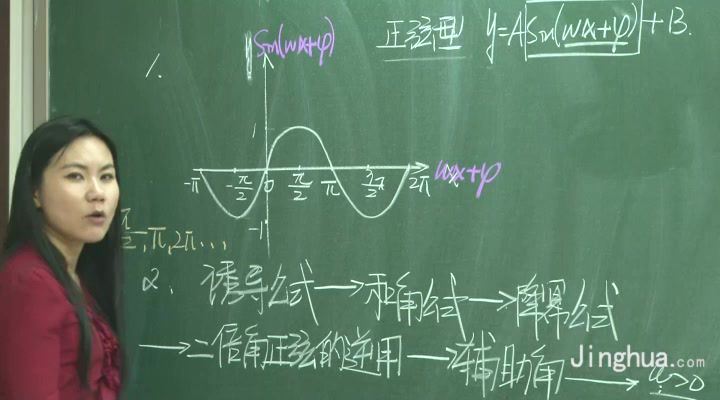 正弦型 y=Asin(wx+φ)+B.
1.
y sin(wx+φ)
1
-π -π/2 0 π/2 π 3π/2 2π wx+φ
-1
π/2,π,2π...
2. 诱导公式→和角公式→降幂公式
→二倍角正弦的逆用→辅助角→w>0
Jinghua.com